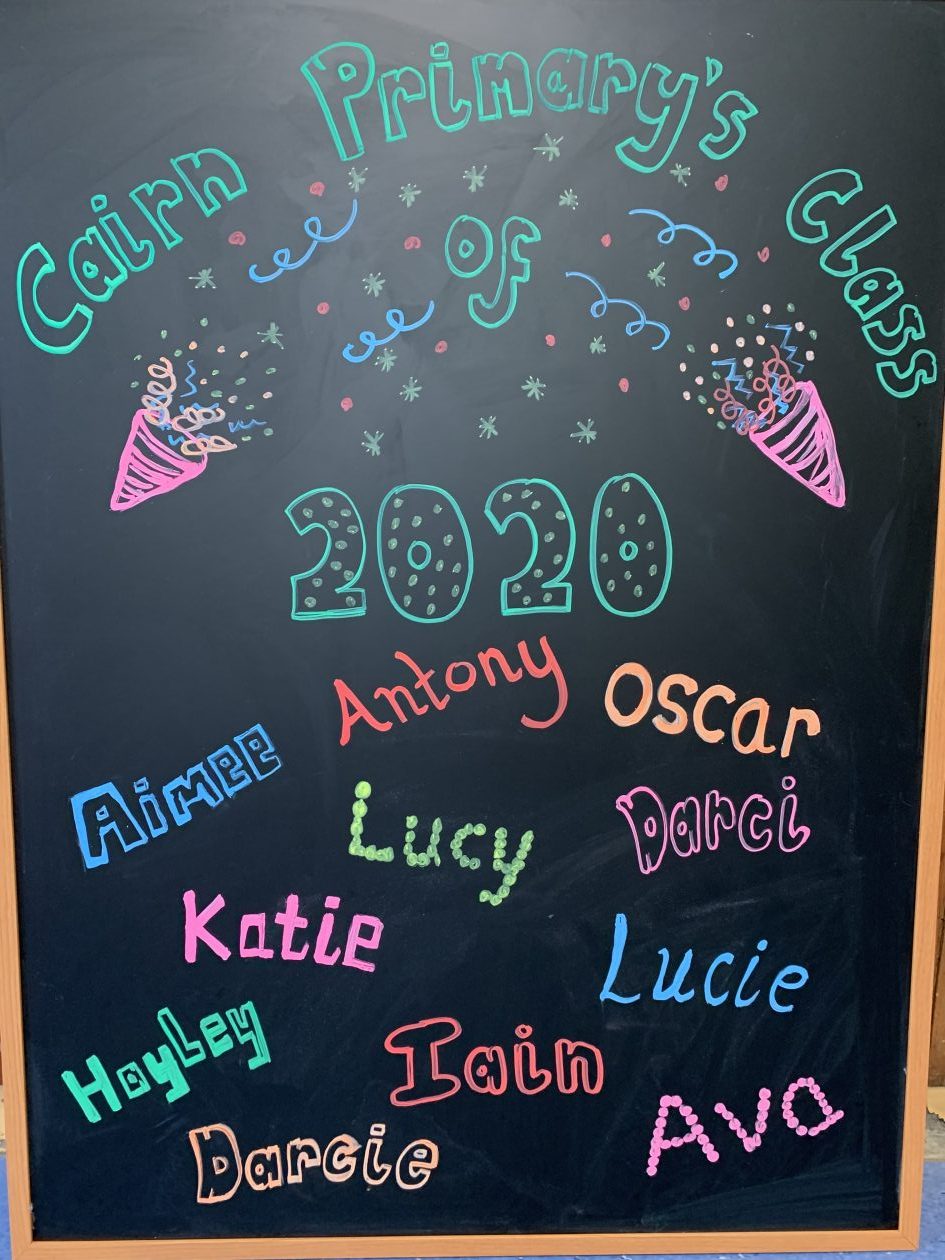 Cairn Primary's Class
of
2020
Antony Oscar
Aimee
Lucy Darci
Katie
Lucie
Hayley Iain
Ava
Darcie